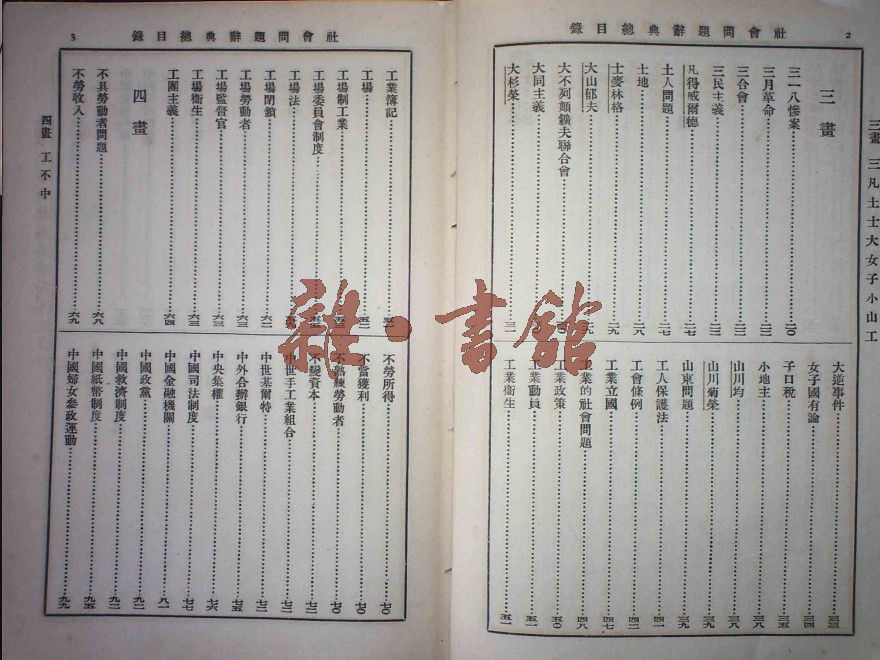 2
社會問題辭典總目錄
三畫 三凡土士大女子小山工
三畫
三一八慘案 二〇
三月革命
三合會
三民主義
凡得威爾德 二七
土人問題 二七
土地
士麥林格
大山郁夫
大不列顛鑛夫聯合會
大同主義
大杉榮
大逆事件 三三
女子國有論 三四
子口稅 三五
小地主 三八
山川均 三八
山川菊榮 三九
山東問題 三九
工人保護法 四一
工會條例 四二
工業立國 四七
工業的社會問題 四八
工業政策 五〇
工業動員 五一
工業衛生 五一
社會問題辭典總目錄
3
工業簿記
工場
工場制工業
工場委員會制度
工場法
工場閉鎖
工場勞動者
工場監督官 六三
工場衛生 六三
工團主義 六四
四畫
不具勞動者問題 六八
不勞收入 六九
不勞所得 七〇
不當獲利 七〇
不熟練勞動者 七〇
不變資本
中世手工業組合
中世基爾特
中外合辦銀行 七五
中央集權 七六
中國司法制度 七七
中國金融機關 八一
中國政黨
中國救濟制度
中國紙幣制度 九五
中國婦女參政運動 九九
四畫 工不中
雜·書館